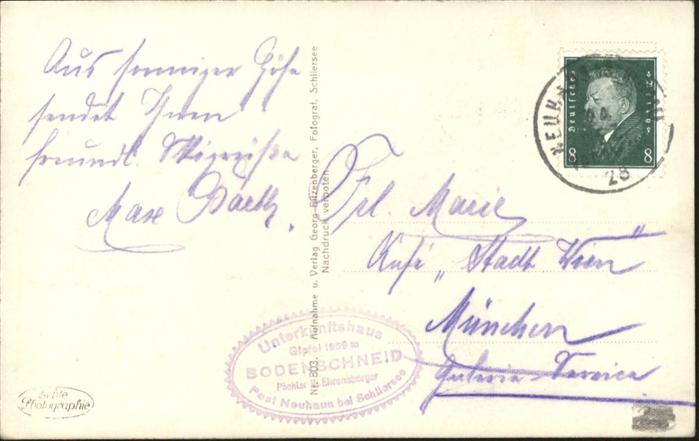 Aus sonniger Höhe
sendet Ihnen
freundl. Skigrüße
Max
Frl. Marie
Kafé „Stadt Wien"
München
Galerie-Service
Nr. 803. Aufnahme u. Verlag Georg Fitzenberger, Fotograf, Schliersee
Nachdruck verboten
Unterkunftshaus
Gipfel 1669 m
BODENSCHNEID
Pächter Ehrensberger
Post Neuhaus bei Schliersee
Echte
Photographie
Deutsches Reich
8 8
NEUHAUS
28